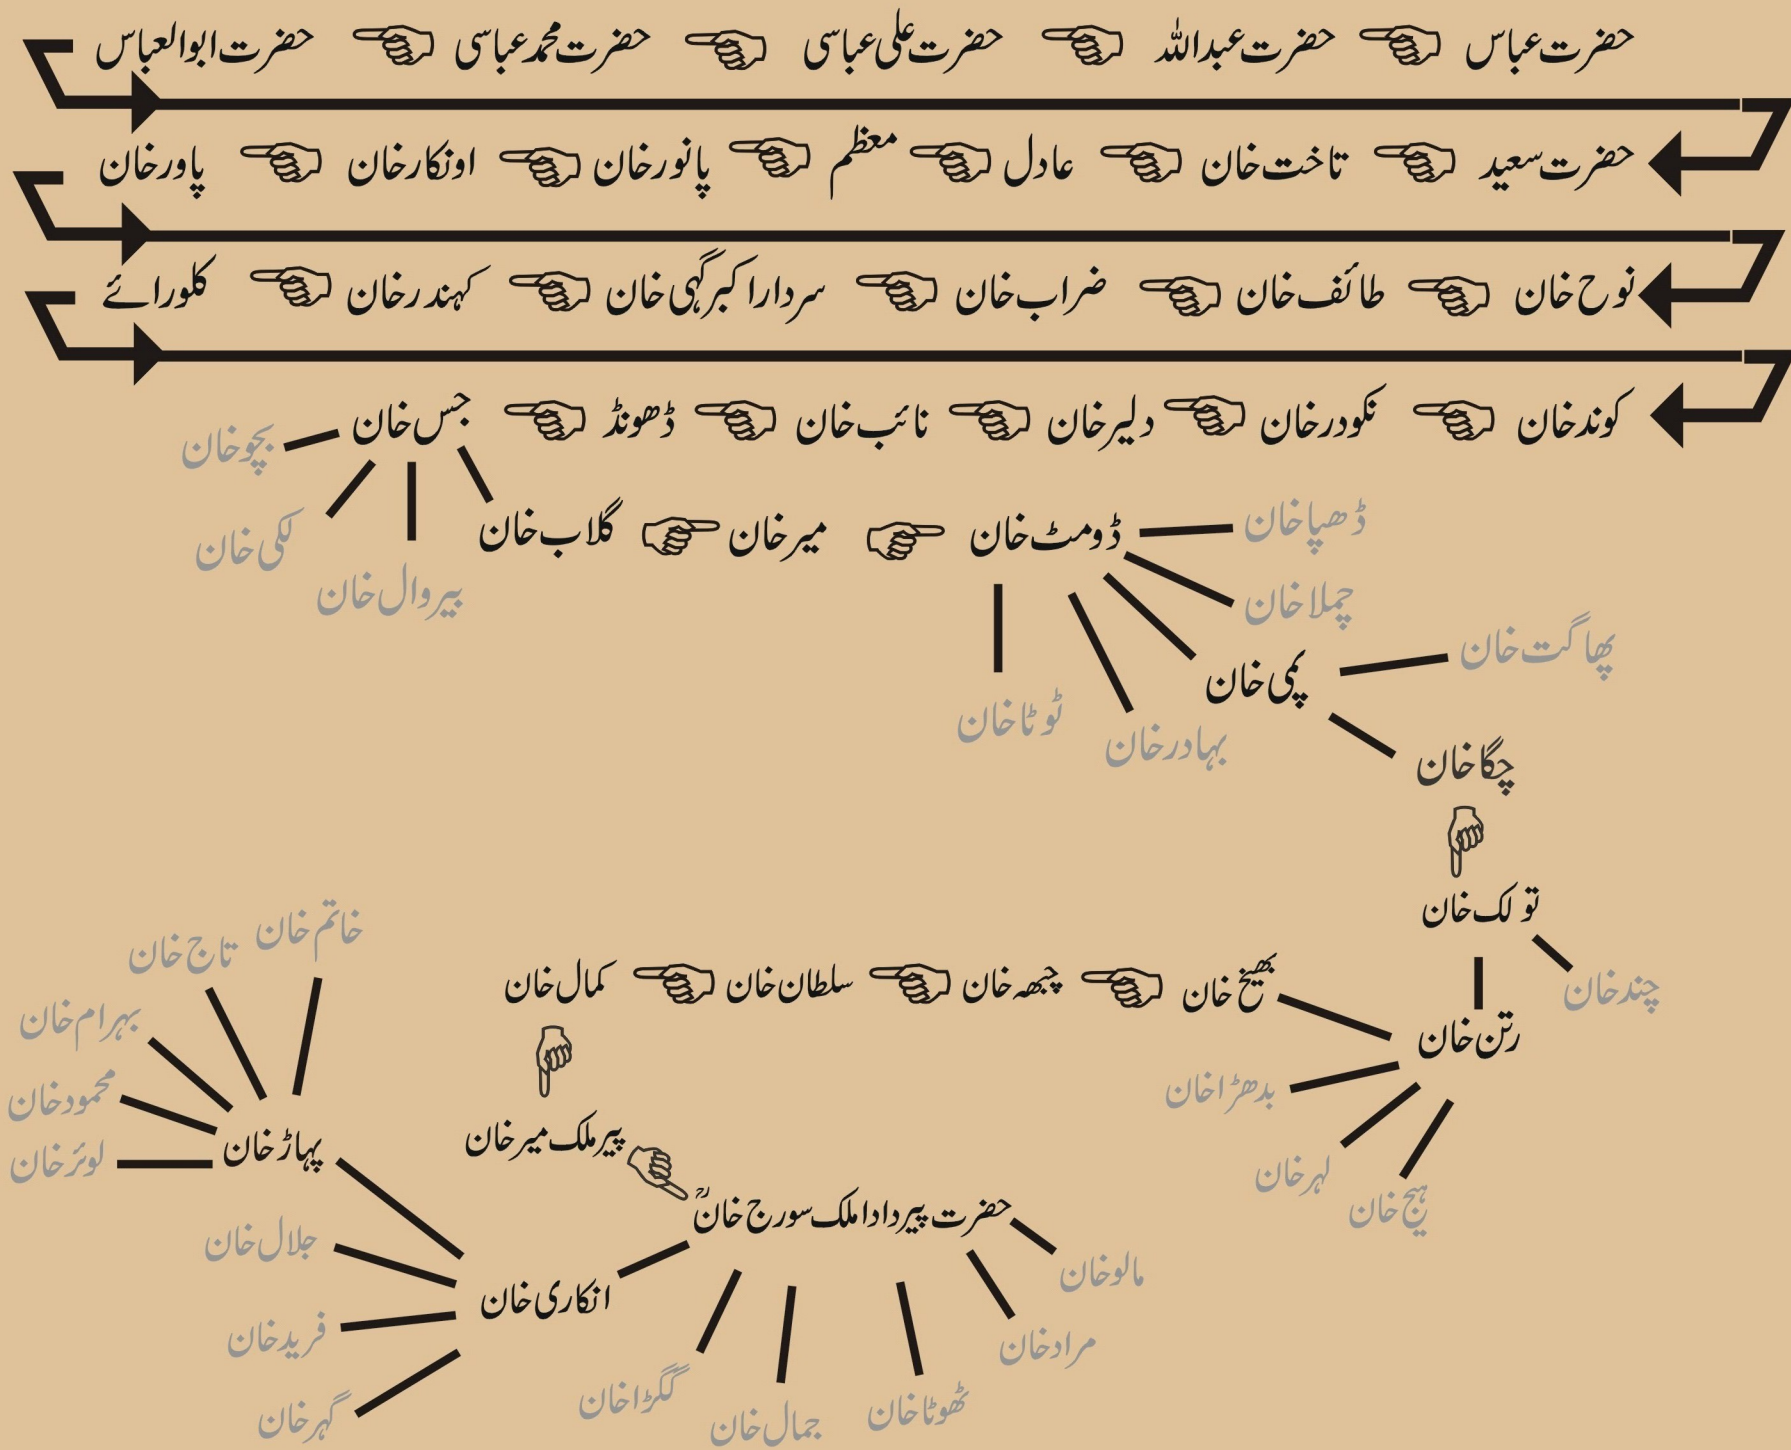 حضرت عباس حضرت عبداللہ حضرت علی عباسی حضرت محمد عباسی حضرت ابوالعباس
حضرت سعید تاخت خان عادل معظم پانور خان اونکار خان پاور خان
نوح خان طائف خان ضراب خان سردار اکبر گہی خان کہندر خان کلورائے
کوند خان نکودر خان دلیر خان نائب خان ڈھونڈ جس خان
بجو خان
لکی خان
بیروال خان
گلاب خان میر خان ڈومٹ خان
ڈھپا خان
چملا خان
پمی خان
بہادر خان
ٹوٹا خان
پھاگت خان
چگا خان
تولک خان
چند خان
رتن خان
بھیخ خان چبھہ خان سلطان خان کمال خان
بدھڑا خان
لہر خان
ہیج خان
پیر ملک میر خان
حضرت پیر دادا ملک سورج خانؒ
مالو خان
مراد خان
ٹھوٹا خان
جمال خان
گگڑا خان
انکاری خان
پہاڑ خان
جلال خان
فرید خان
گہر خان
خاتم خان
تاج خان
بہرام خان
محمود خان
لوئر خان